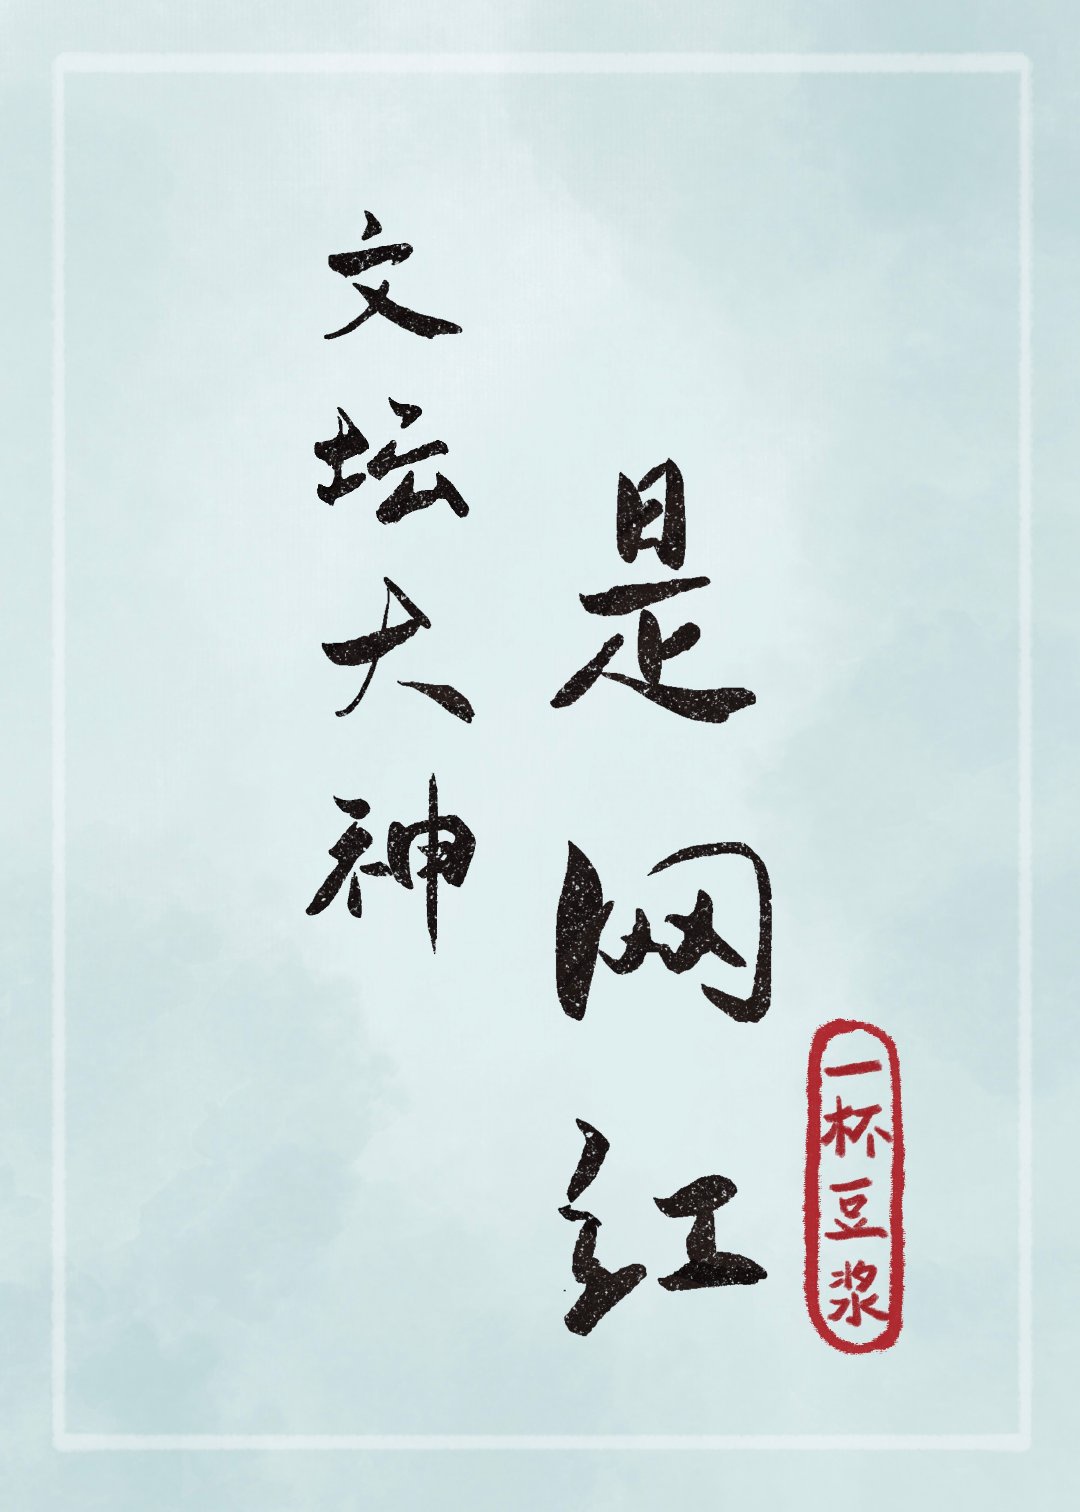 文坛大神
是网红
一杯豆浆